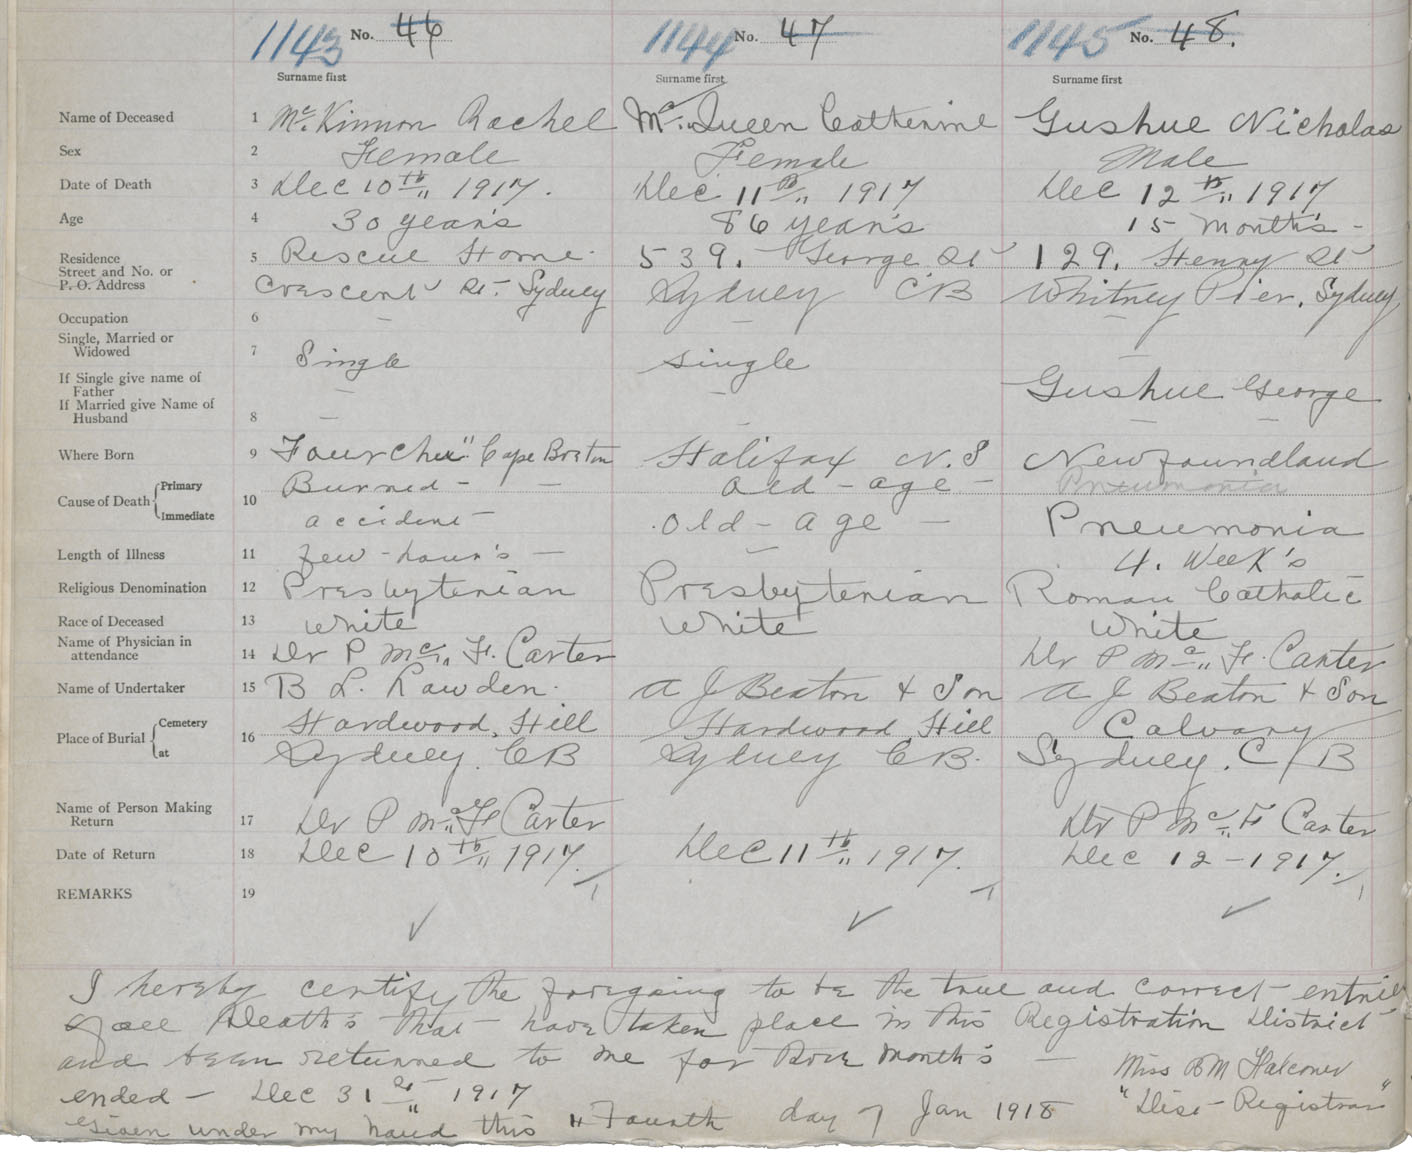 1143 No. 46 1144 No. 47 1145 No. 48.
Surname first Surname first Surname first
Name of Deceased 1 McKinnon Rachel McQueen Catherine Gushue Nicholas
Sex 2 Female Female Male
Date of Death 3 Dec 10th 1917. Dec 11th 1917 Dec 12th 1917
Age 4 30 year's 86 year's 15 Month's -
Residence Street and No. or P. O. Address 5 Rescue Home 539. George St 129. Henry St
Crescent St. Sydney Sydney CB Whitney Pier, Sydney
Occupation 6 — —
Single, Married or Widowed 7 Single single —
If Single give name of Father — — Gushue George
If Married give Name of Husband 8 — — —
Where Born 9 Fourchu" Cape Breton Halifax N.S Newfoundland
Cause of Death Primary 10 Burned - — old - age - Pneumonia
Immediate accident - old - age — Pneumonia
Length of Illness 11 few - hour's — — 4. Week's
Religious Denomination 12 Presbyterian Presbyterian Roman Catholic
Race of Deceased 13 White White White
Name of Physician in attendance 14 Dr P Mc F. Carter Dr P Mc F. Carter
Name of Undertaker 15 B L. Lowden. A J Beaton & Son A J Beaton & Son
Place of Burial Cemetery 16 Hardwood Hill Hardwood Hill Calvary
at Sydney. CB Sydney CB. Sydney. C/B
Name of Person Making Return 17 Dr P Mc F Carter Dr P Mc F Carter
Date of Return 18 Dec 10th 1917. Dec 11th 1917. Dec 12 - 1917.
REMARKS 19
I hereby certify the foregoing to be the true and correct - entries
of all Death's that - have taken place in this Registration District
and been returned to me for Month's —
Miss B M Falconer
ended — Dec 31st 1917
"Dist - Registrar"
Given under my hand this " Fourth day of Jan 1918